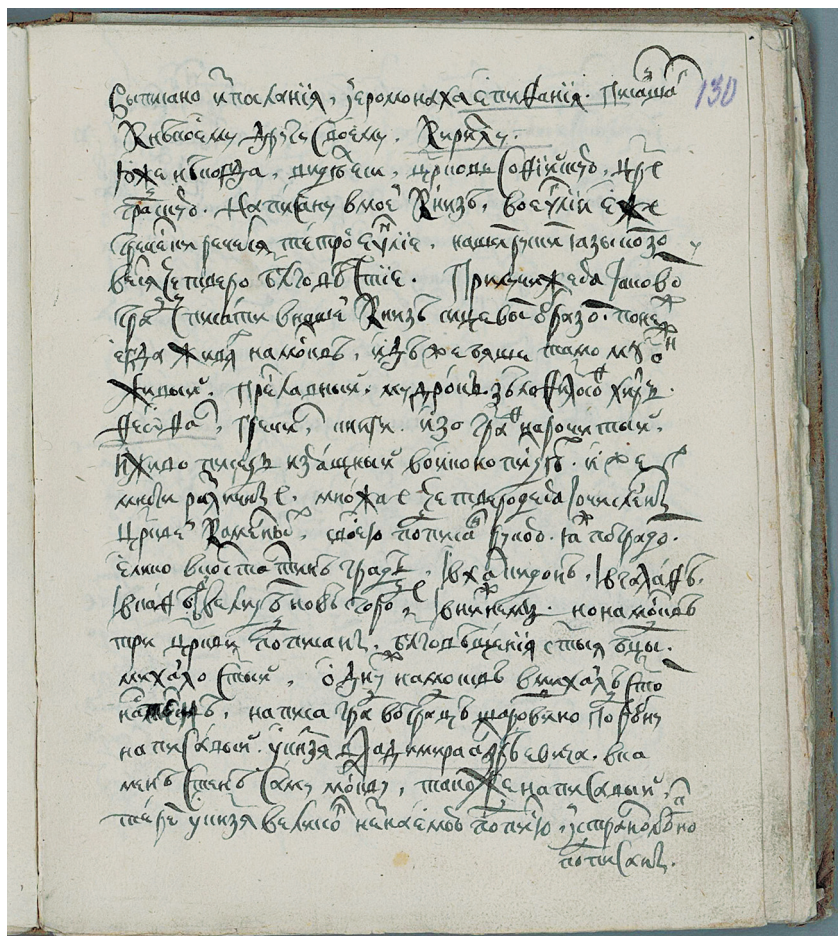 Выписано и҆ послания, і҆еромонаха епифанїя. Писаша͏ᴦ 130
К нѣкоему другу своему. Кирилу.
Юже нѣкогда, видѣлъ еси, црковь софїйскую, цре
градскую. написану в моеи книзѣ, во еѵлїи еже
гречески речеся тетроеѵлїе, нашим руским языком зо
вется четвероблговѣстїе. Прилучи же ся таково
град списати в нашеи книзѣ сицевым образом. понеж
егда живях на москвѣ, идѣже бяше тамо муж он
живыи, преславныи, мудрокъ. зѣло философ хитръ.
феѡфан, гречин, книги изограф нарочитыи,
и живописецъ изящныи во иконописцѣх. иже
многи различные, множае четверодесѧ и числены
цркви каменных, своею подписал рукою. яже по градом.
елико в костянтинѣ градѣ, и в халкидонѣ, и в галафѣ,
и в кафѣ и в великом новѣгородѣ, и в нижнемъ. но на москвѣ
три цркви подписаны, блговѣщения стыя бцы.
михаило стыи, одну ж на москвѣ в михаилѣ сто
на стенѣ, написа град во градцѣ шаровидно подробну
написавыи. у князя владимира андрѣевича. в ка
мене стенѣ саму москву, такоже написавыи,
терем у князя великого незнаемою подписью, и страннолѣпно
подписанъ.